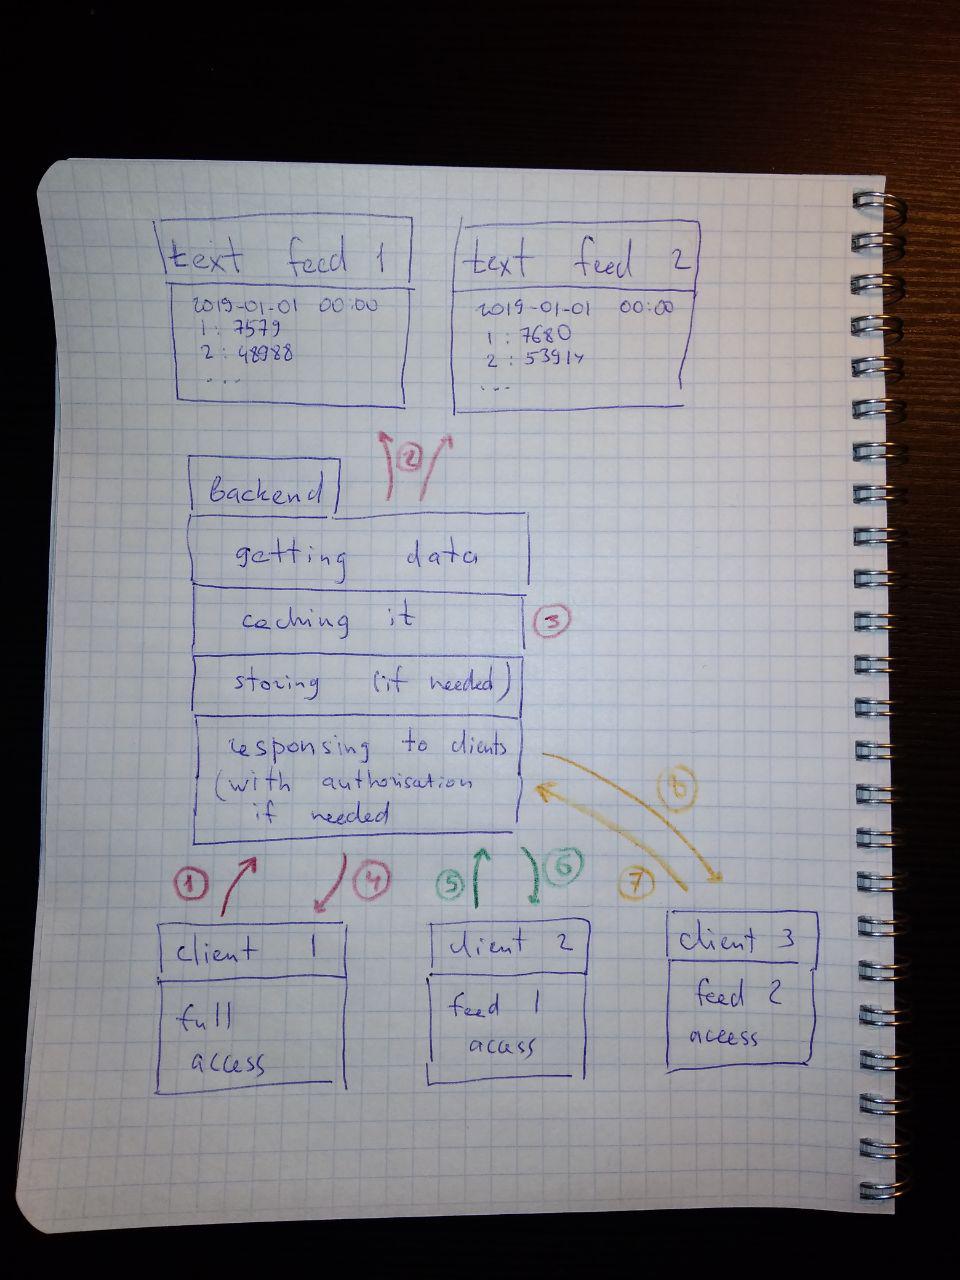 text feed 1
2019-01-01 00:00
1: 7579
2: 48988
...
text feed 2
2019-01-01 00:00
1: 7680
2: 53914
...
2
Backend
getting data
caching it
3
storing (if needed)
responsing to clients
(with authorisation
if needed
1
4
5
6
7
8
client 1
full
access
client 2
feed 1
access
client 3
feed 2
access